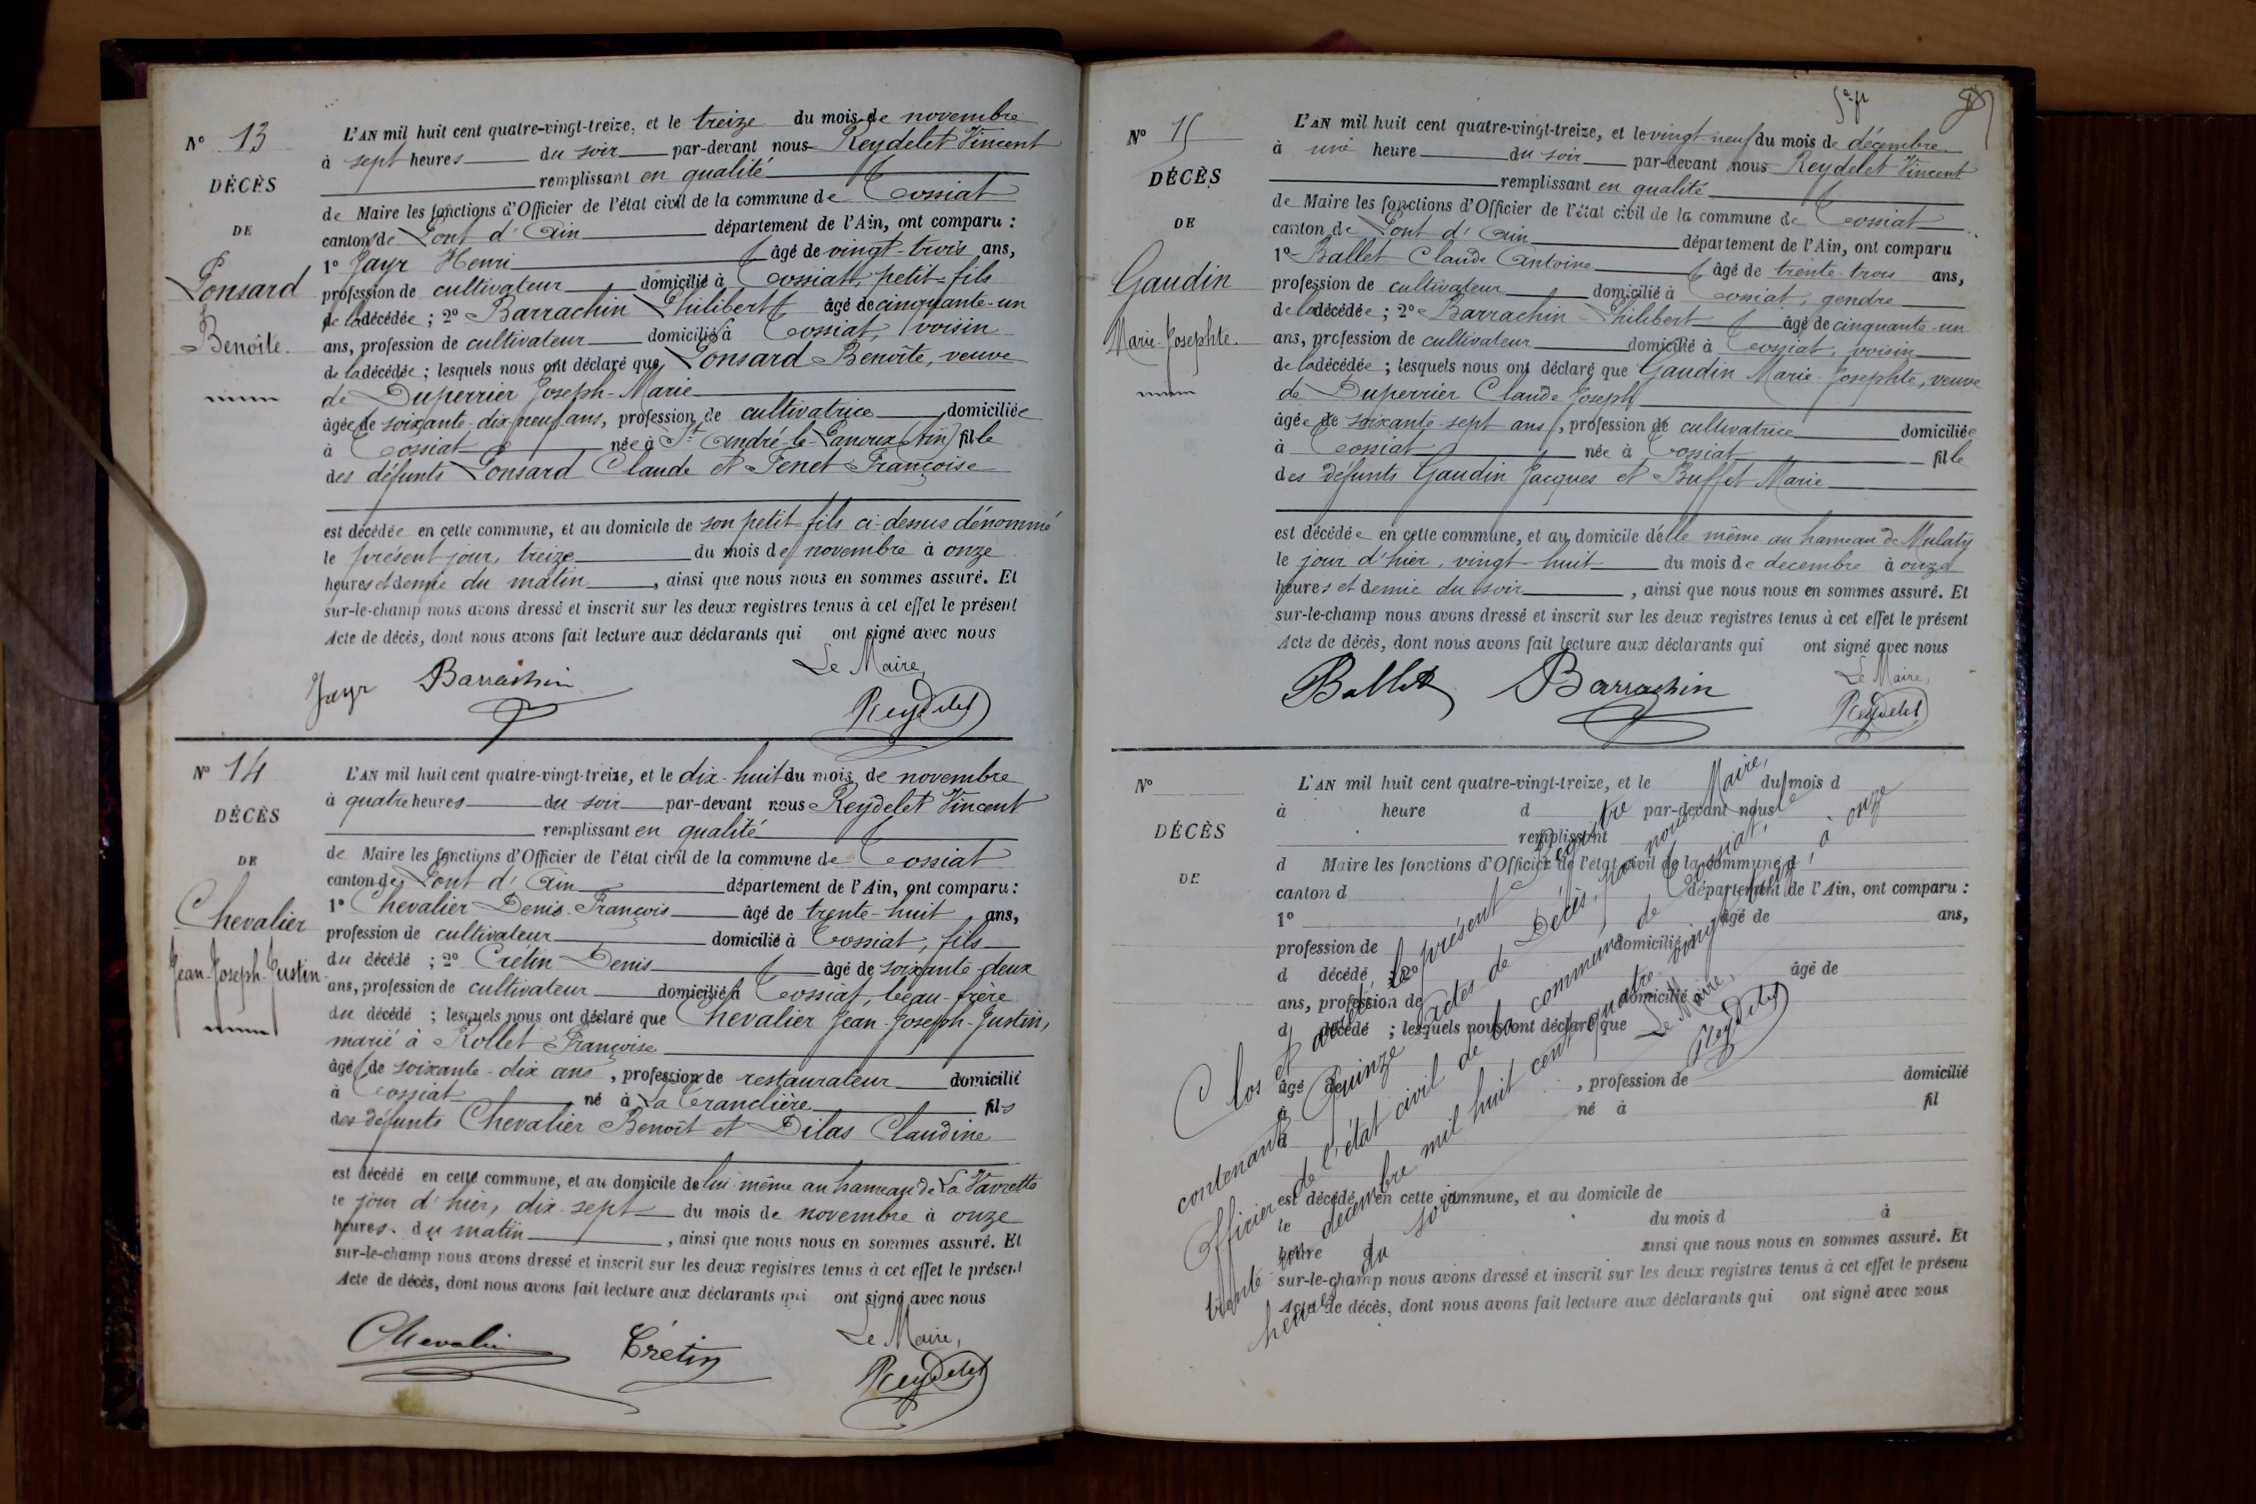 N° 13
DÉCÈS
DE
Ponsard
Benoîte.
L'AN mil huit cent quatre-vingt-treize, et le treize du mois de novembre
à sept heures du soir par-devant nous Reydelet Vincent
remplissant en qualité
de Maire les fonctions d'Officier de l'état civil de la commune de Tossiat
canton de Pont d'Ain département de l'Ain, ont comparu :
1° Jayr Henri âgé de vingt-trois ans,
profession de cultivateur domicilié à Tossiat, petit-fils
de la décédée ; 2° Barrachin Philibert âgé de cinquante-un
ans, profession de cultivateur domicilié à Tossiat, voisin
de la décédée ; lesquels nous ont déclaré que Ponsard Benoîte, veuve
de Duperrier Joseph-Marie
âgée de soixante-dix-neuf ans, profession de cultivatrice domiciliée
à Tossiat née à St André-le-Panoux (Ain) fille
des défunts Ponsard Claude et Fenet Françoise
est décédée en cette commune, et au domicile de son petit-fils ci-dessus dénommé
le présent jour, treize du mois de novembre à onze
heures et demie du matin, ainsi que nous nous en sommes assuré. Et
sur-le-champ nous avons dressé et inscrit sur les deux registres tenus à cet effet le présent
Acte de décès, dont nous avons fait lecture aux déclarants qui ont signé avec nous
Le Maire,
Jayr Barrachin Reydelet
N° 14
DÉCÈS
DE
Chevalier
Jean-Joseph-Justin
L'AN mil huit cent quatre-vingt-treize, et le dix-huit du mois de novembre
à quatre heures du soir par-devant nous Reydelet Vincent
remplissant en qualité
de Maire les fonctions d'Officier de l'état civil de la commune de Tossiat
canton de Pont d'Ain département de l'Ain, ont comparu :
1° Chevalier Denis-François âgé de trente-huit ans,
profession de cultivateur domicilié à Tossiat, fils
du décédé ; 2° Crétin Denis âgé de soixante-deux
ans, profession de cultivateur domicilié à Tossiat, beau-frère
du décédé ; lesquels nous ont déclaré que Chevalier Jean-Joseph-Justin,
marié à Rollet Françoise
âgé de soixante-dix ans, profession de restaurateur domicilié
à Tossiat né à La Tranclière fils
des défunts Chevalier Benoît et Dilas Claudine
est décédé en cette commune, et au domicile de lui-même au hameau de La Vavrette
le jour d'hier, dix-sept du mois de novembre à onze
heures du matin, ainsi que nous nous en sommes assuré. Et
sur-le-champ nous avons dressé et inscrit sur les deux registres tenus à cet effet le présent
Acte de décès, dont nous avons fait lecture aux déclarants qui ont signé avec nous
Le Maire,
Chevalier Crétin Reydelet
N° 15
DÉCÈS
DE
Gaudin
Marie-Josephte.
L'AN mil huit cent quatre-vingt-treize, et le vingt-neuf du mois de décembre
à une heure du soir par-devant nous Reydelet Vincent
remplissant en qualité
de Maire les fonctions d'Officier de l'état civil de la commune de Tossiat
canton de Pont d'Ain département de l'Ain, ont comparu
1° Ballet Claude Antoine âgé de trente-trois ans,
profession de cultivateur domicilié à Tossiat, gendre
de la décédée ; 2° Barrachin Philibert âgé de cinquante-un
ans, profession de cultivateur domicilié à Tossiat, voisin
de la décédée ; lesquels nous ont déclaré que Gaudin Marie-Josephte, veuve
de Duperrier Claude Joseph
âgée de soixante-sept ans, profession de cultivatrice domiciliée
à Tossiat née à Tossiat fille
des défunts Gaudin Jacques et Buffet Marie
est décédée en cette commune, et au domicile d'elle même au hameau de Mulaty
le jour d'hier, vingt-huit du mois de decembre à onze
heures et demie du soir, ainsi que nous nous en sommes assuré. Et
sur-le-champ nous avons dressé et inscrit sur les deux registres tenus à cet effet le présent
Acte de décès, dont nous avons fait lecture aux déclarants qui ont signé avec nous
Le Maire,
Ballet Barrachin Reydelet
N°
DÉCÈS
DE
L'AN mil huit cent quatre-vingt-treize, et le du mois d
à heure d par-devant nous
remplissant
d Maire les fonctions d'Officier de l'état civil de la commune d
canton d département de l'Ain, ont comparu :
1° âgé de ans,
profession de domicilié à
d décédé ; 2° âgé de
ans, profession de domicilié à
d décédé ; lesquels nous ont déclaré que
âgé de , profession de domicilié
à né à fil
est décédé en cette commune, et au domicile de
le du mois d à
heure ainsi que nous nous en sommes assuré. Et
sur-le-champ nous avons dressé et inscrit sur les deux registres tenus à cet effet le présent
Acte de décès, dont nous avons fait lecture aux déclarants qui ont signé avec nous
Clos et arrêté le présent Registre
contenant Quinze actes de Décès, par nous, Maire,
Officier de l'état civil de la commune de Tossiat, le
trente-un décembre mil huit cent quatre-vingt-treize, à onze
heures du soir
Le Maire,
Reydelet